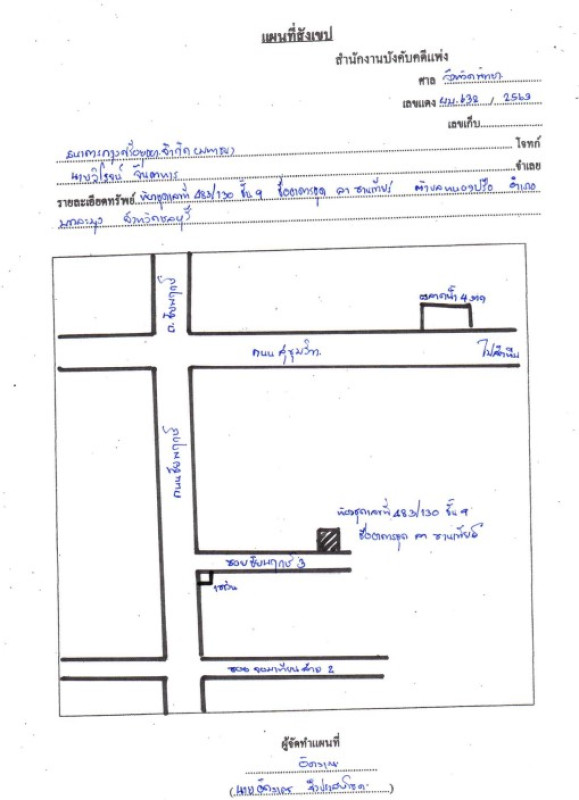 แผนที่สังเขป
สำนักงานบังคับคดีแพ่ง
ศาล จังหวัดพัทยา
เลขแดง ผบ.632 / 2563
เลขเก็บ
ธนาคารกรุงศรีอยุธยา จำกัด (มหาชน) โจทก์
นายวิโรจน์ จันดาหาร จำเลย
รายละเอียดทรัพย์ ห้องชุดเลขที่ 483/130 ชั้น 9 ชื่ออาคารชุด ลา ซานเทียร์ ตำบลหนองปรือ อำเภอ
บางละมุง จังหวัดชลบุรี
ถ. ชัยพฤกษ์
ตลาดน้ำ 4 ภาค
ถนน สุขุมวิท
ไปสัตหีบ
ถนนชัยพฤกษ์
ห้องชุดเลขที่ 483/130 ชั้น 9
ชื่ออาคารชุด ลา ซานเทียร์
ซอยชัยพฤกษ์ 3
ซอย จอมเทียนสาย 2
ผู้จัดทำแผนที่